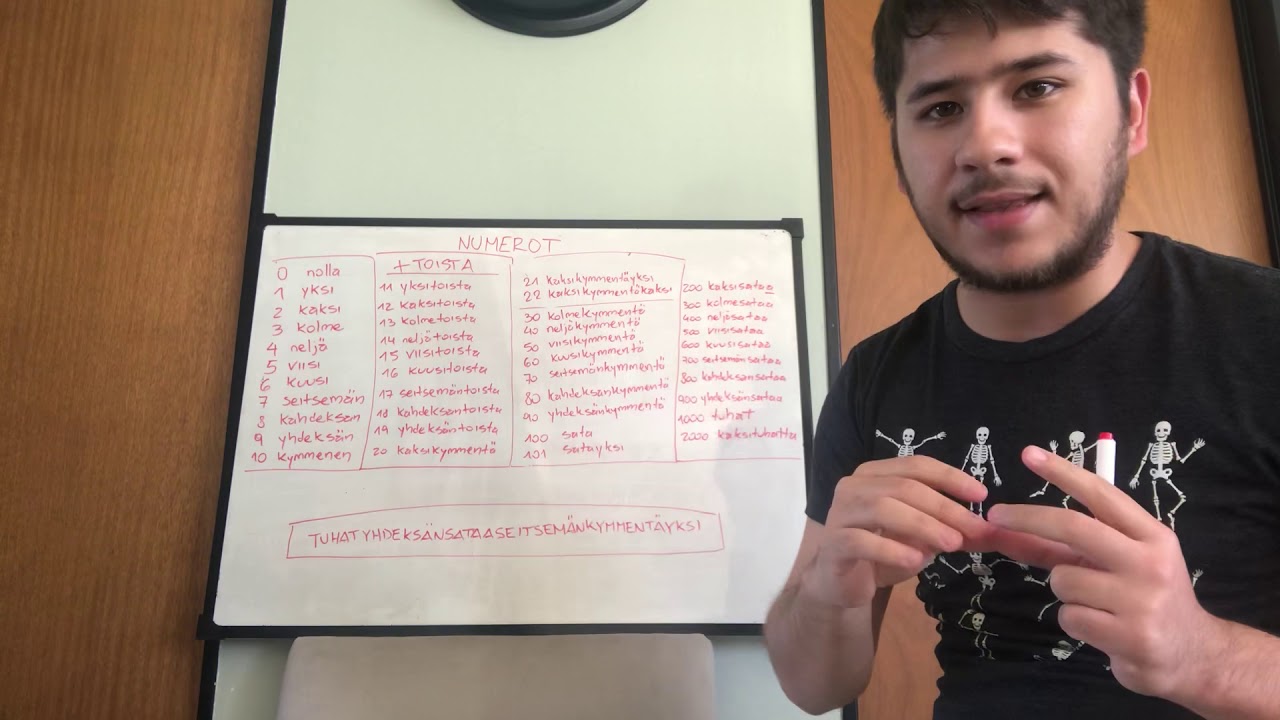 NUMEROT
0 nolla
1 yksi
2 kaksi
3 kolme
4 neljä
5 viisi
6 kuusi
7 seitsemän
8 kahdeksan
9 yhdeksän
10 kymmenen
+ TOISTA
11 yksitoista
12 kaksitoista
13 kolmetoista
14 neljätoista
15 viisitoista
16 kuusitoista
17 seitsemäntoista
18 kahdeksantoista
19 yhdeksäntoista
20 kaksikymmentä
21 kaksikymmentäyksi
22 kaksikymmentäkaksi
30 kolmekymmentä
40 neljäkymmentä
50 viisikymmentä
60 kuusikymmentä
70 seitsemänkymmentä
80 kahdeksankymmentä
90 yhdeksänkymmentä
100 sata
101 satayksi
200 kaksisataa
300 kolmesataa
400 neljäsataa
500 viisisataa
600 kuusisataa
700 seitsemänsataa
800 kahdeksansataa
900 yhdeksänsataa
1000 tuhat
2000 kaksituhatta
TUHATYHDEKSÄNSATAASEITSEMÄNKYMMENTÄYKSI